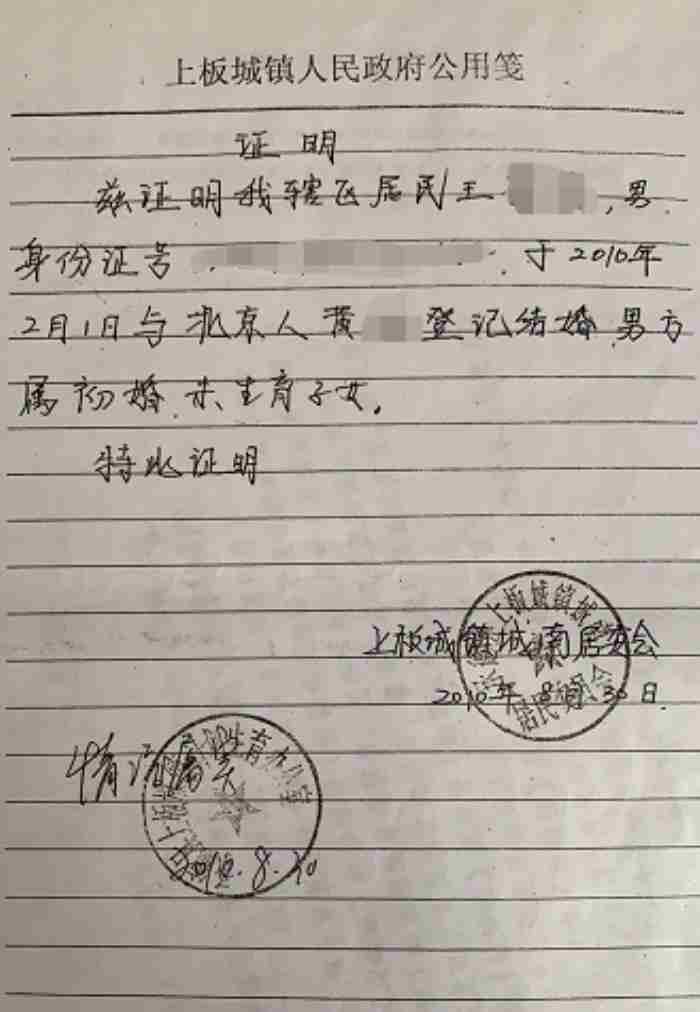 上板城镇人民政府公用笺
证明
兹证明我辖区居民王,男.
身份证号 于2010年
2月1日与北京人黄 登记结婚.男方
属初婚.未生育子女.
特此证明
上板城镇城南居委会
2010年8月30日.
情况属实
2010.8.30
上板城镇城
居民委员会
生育办公室